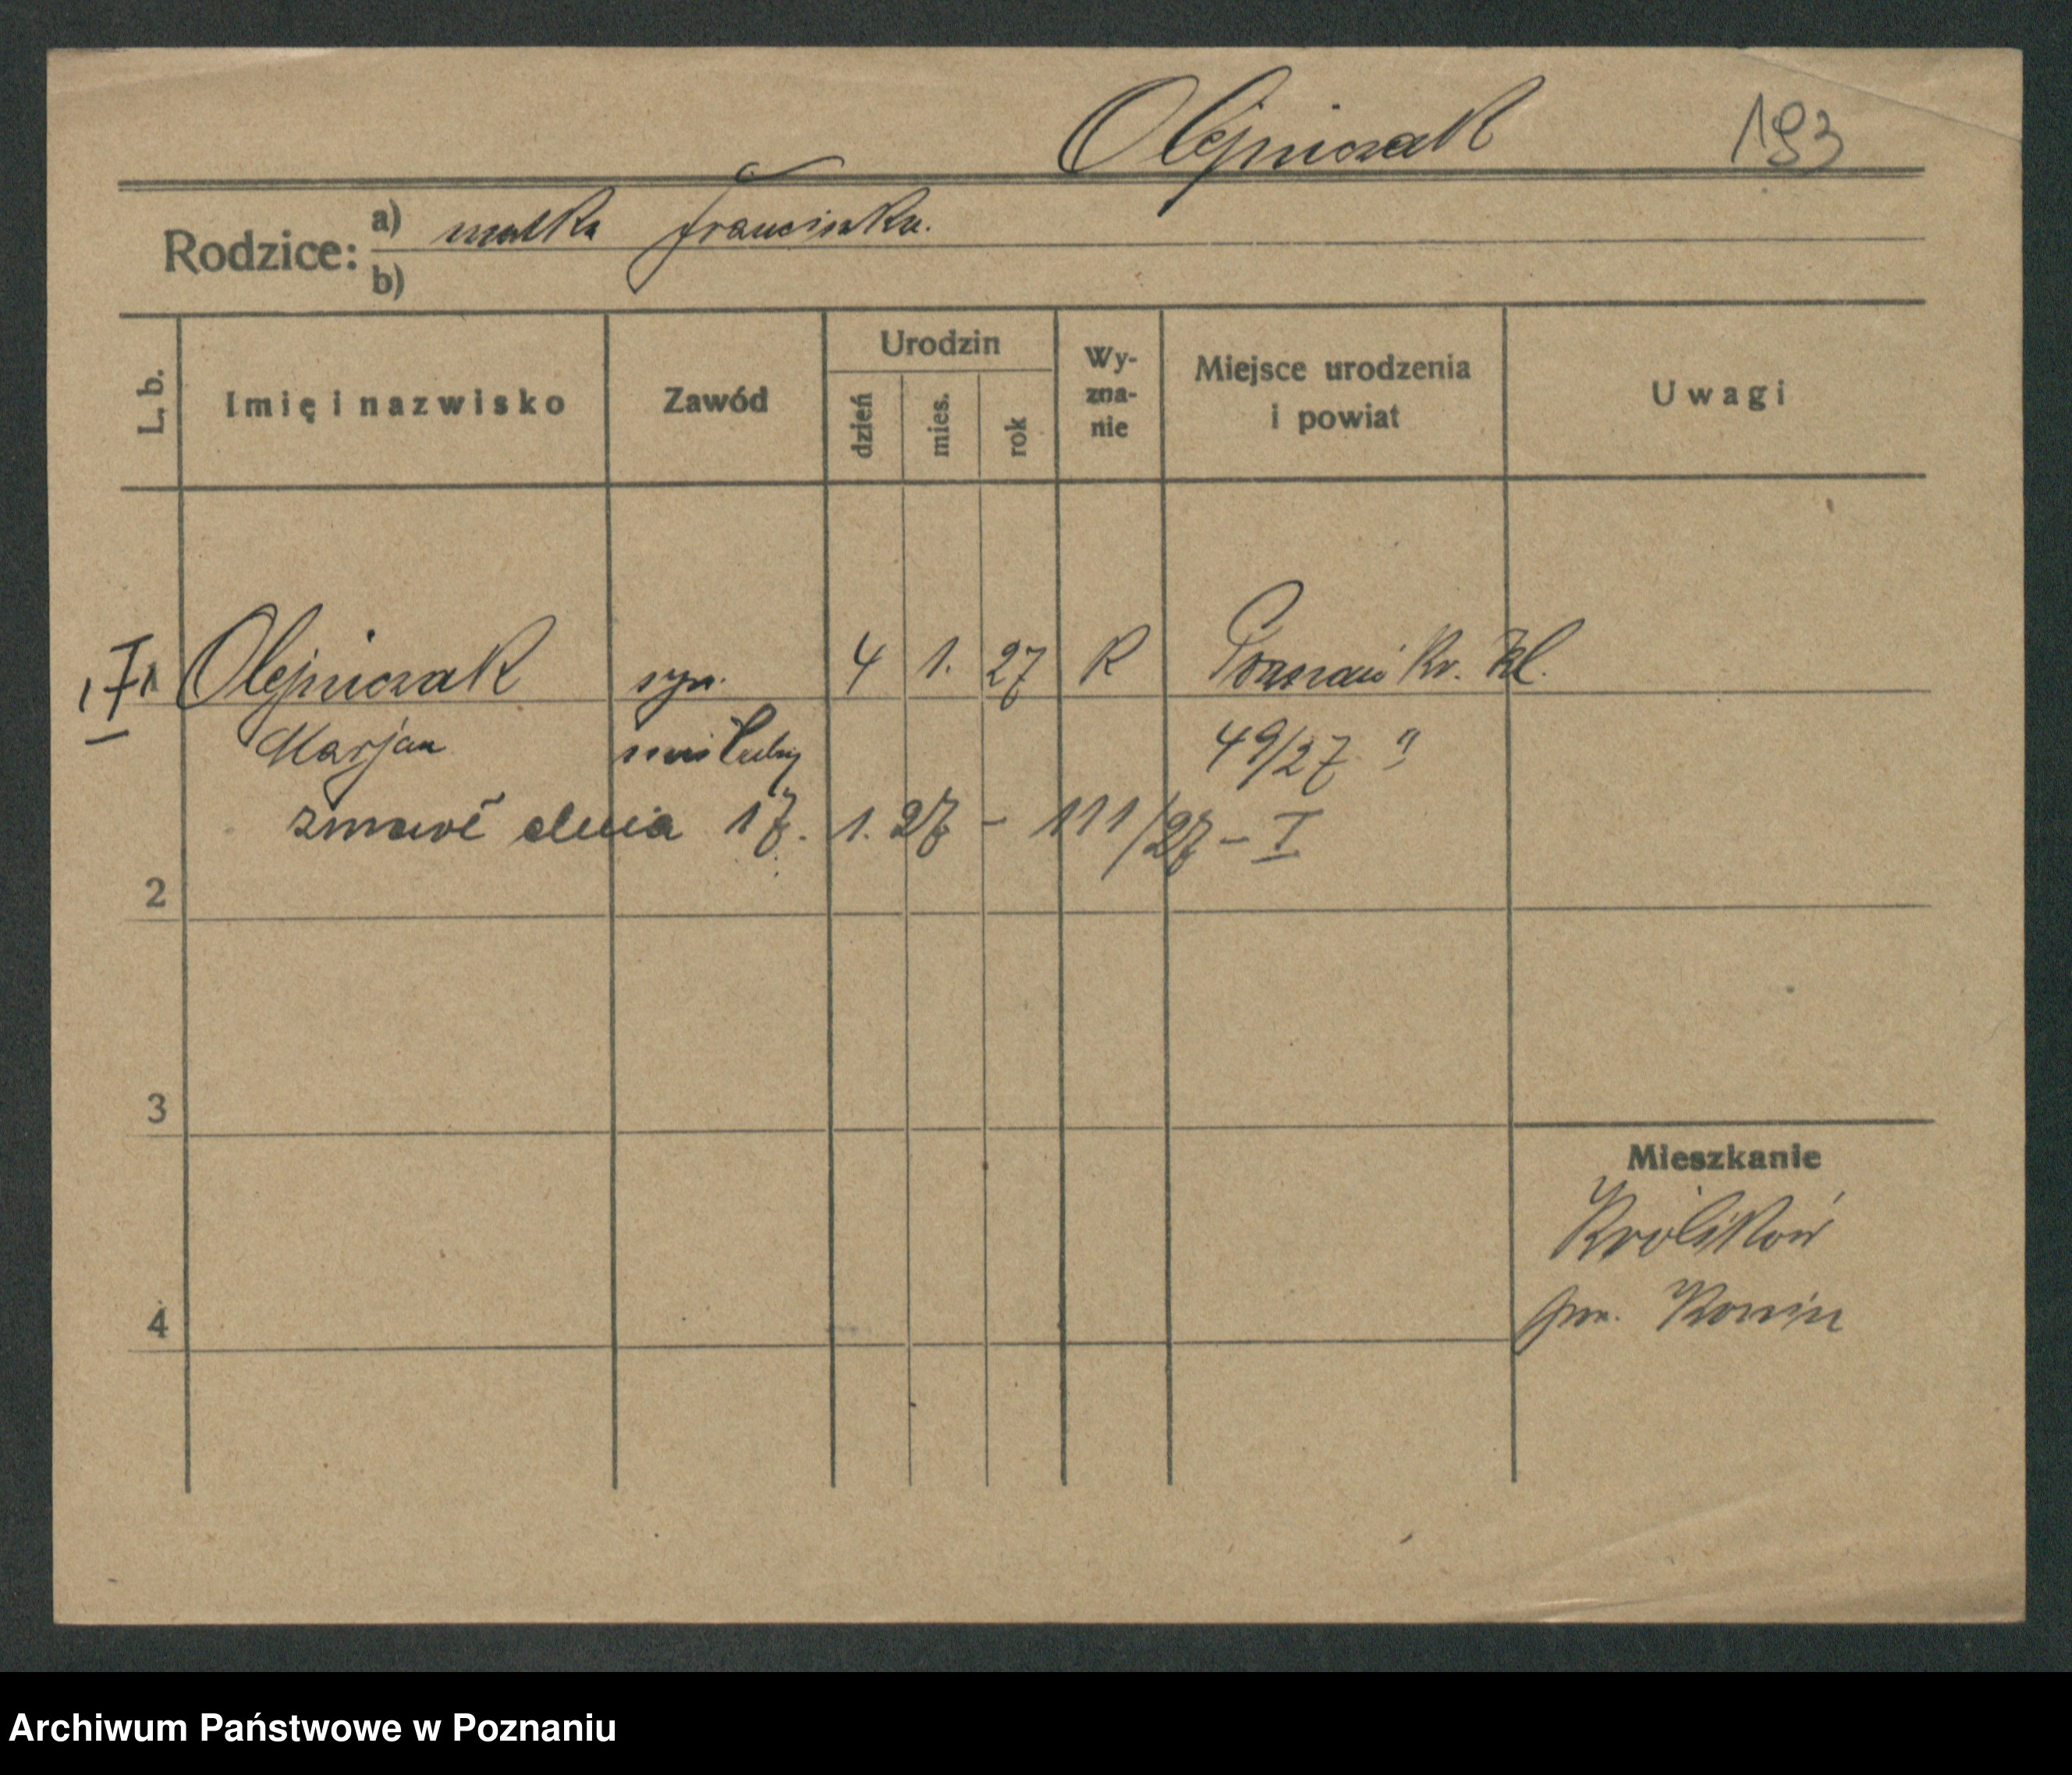 Olejniczak 193
Rodzice: a) matka Franciszka.
b)
L. b. Imię i nazwisko Zawód Urodzin dzień mies. rok Wyznanie Miejsce urodzenia i powiat Uwagi
1 Olejniczak syn. 4 1. 27 R Poznań Kr. Kl.
Marjan nieślubny 49/27 "
zmarł dnia 17. 1. 27 - 111/27 - I
2
3
Mieszkanie
Królików
pow. Konin
4
Archiwum Państwowe w Poznaniu